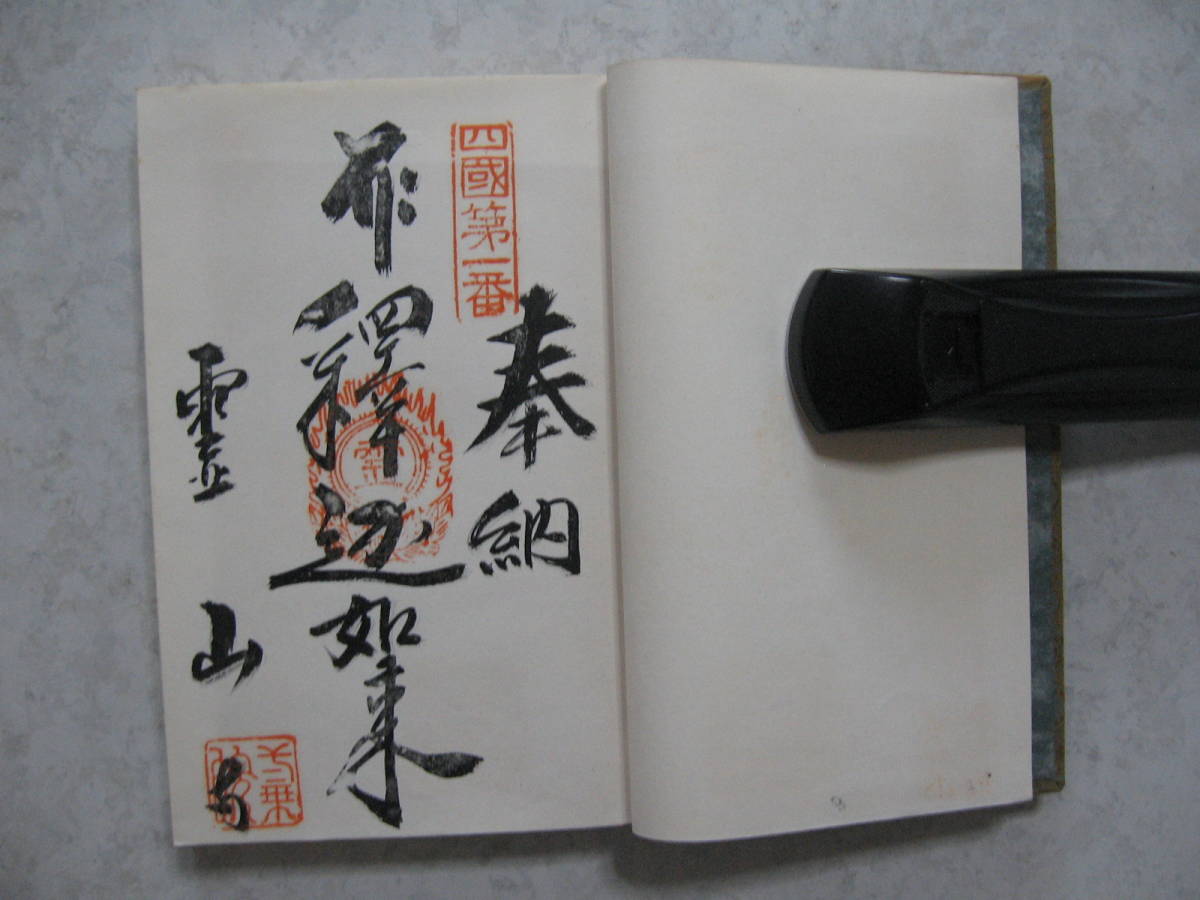 四國第一番
奉納
釋迦如来
霊山寺